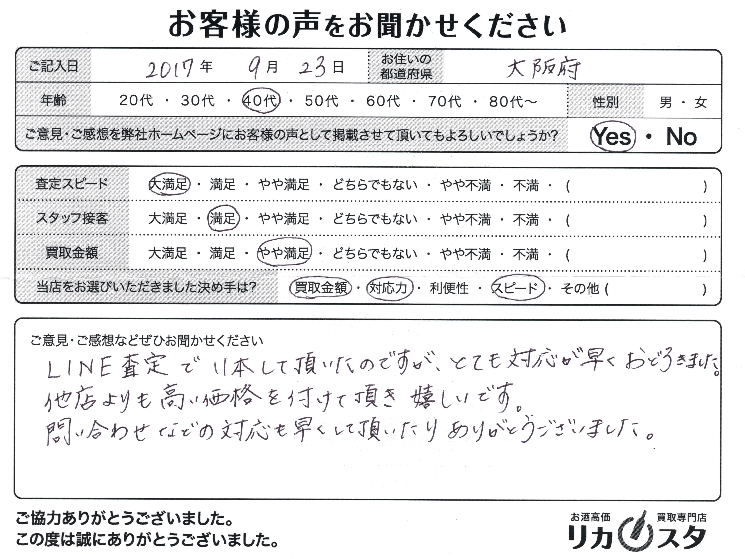 お客様の声をお聞かせください
ご記入日 2017年 9月 23日 お住いの都道府県 大阪府
年齢 20代・30代・40代・50代・60代・70代・80代〜 性別 男・女
ご意見・ご感想を弊社ホームページにお客様の声として掲載させて頂いてもよろしいでしょうか? Yes・No
査定スピード 大満足・満足・やや満足・どちらでもない・やや不満・不満・( )
スタッフ接客 大満足・満足・やや満足・どちらでもない・やや不満・不満・( )
買取金額 大満足・満足・やや満足・どちらでもない・やや不満・不満・( )
当店をお選びいただきました決め手は? 買取金額・対応力・利便性・スピード・その他( )
ご意見・ご感想などぜひお聞かせください
LINE査定で11本して頂いたのですが、とても対応が早くおどろきました。
他店よりも高い価格を付けて頂き嬉しいです。
問い合わせなどの対応も早くして頂いたりありがとうございました。
ご協力ありがとうございました。
この度は誠にありがとうございました。
お酒高価 買取専門店
リカスタ